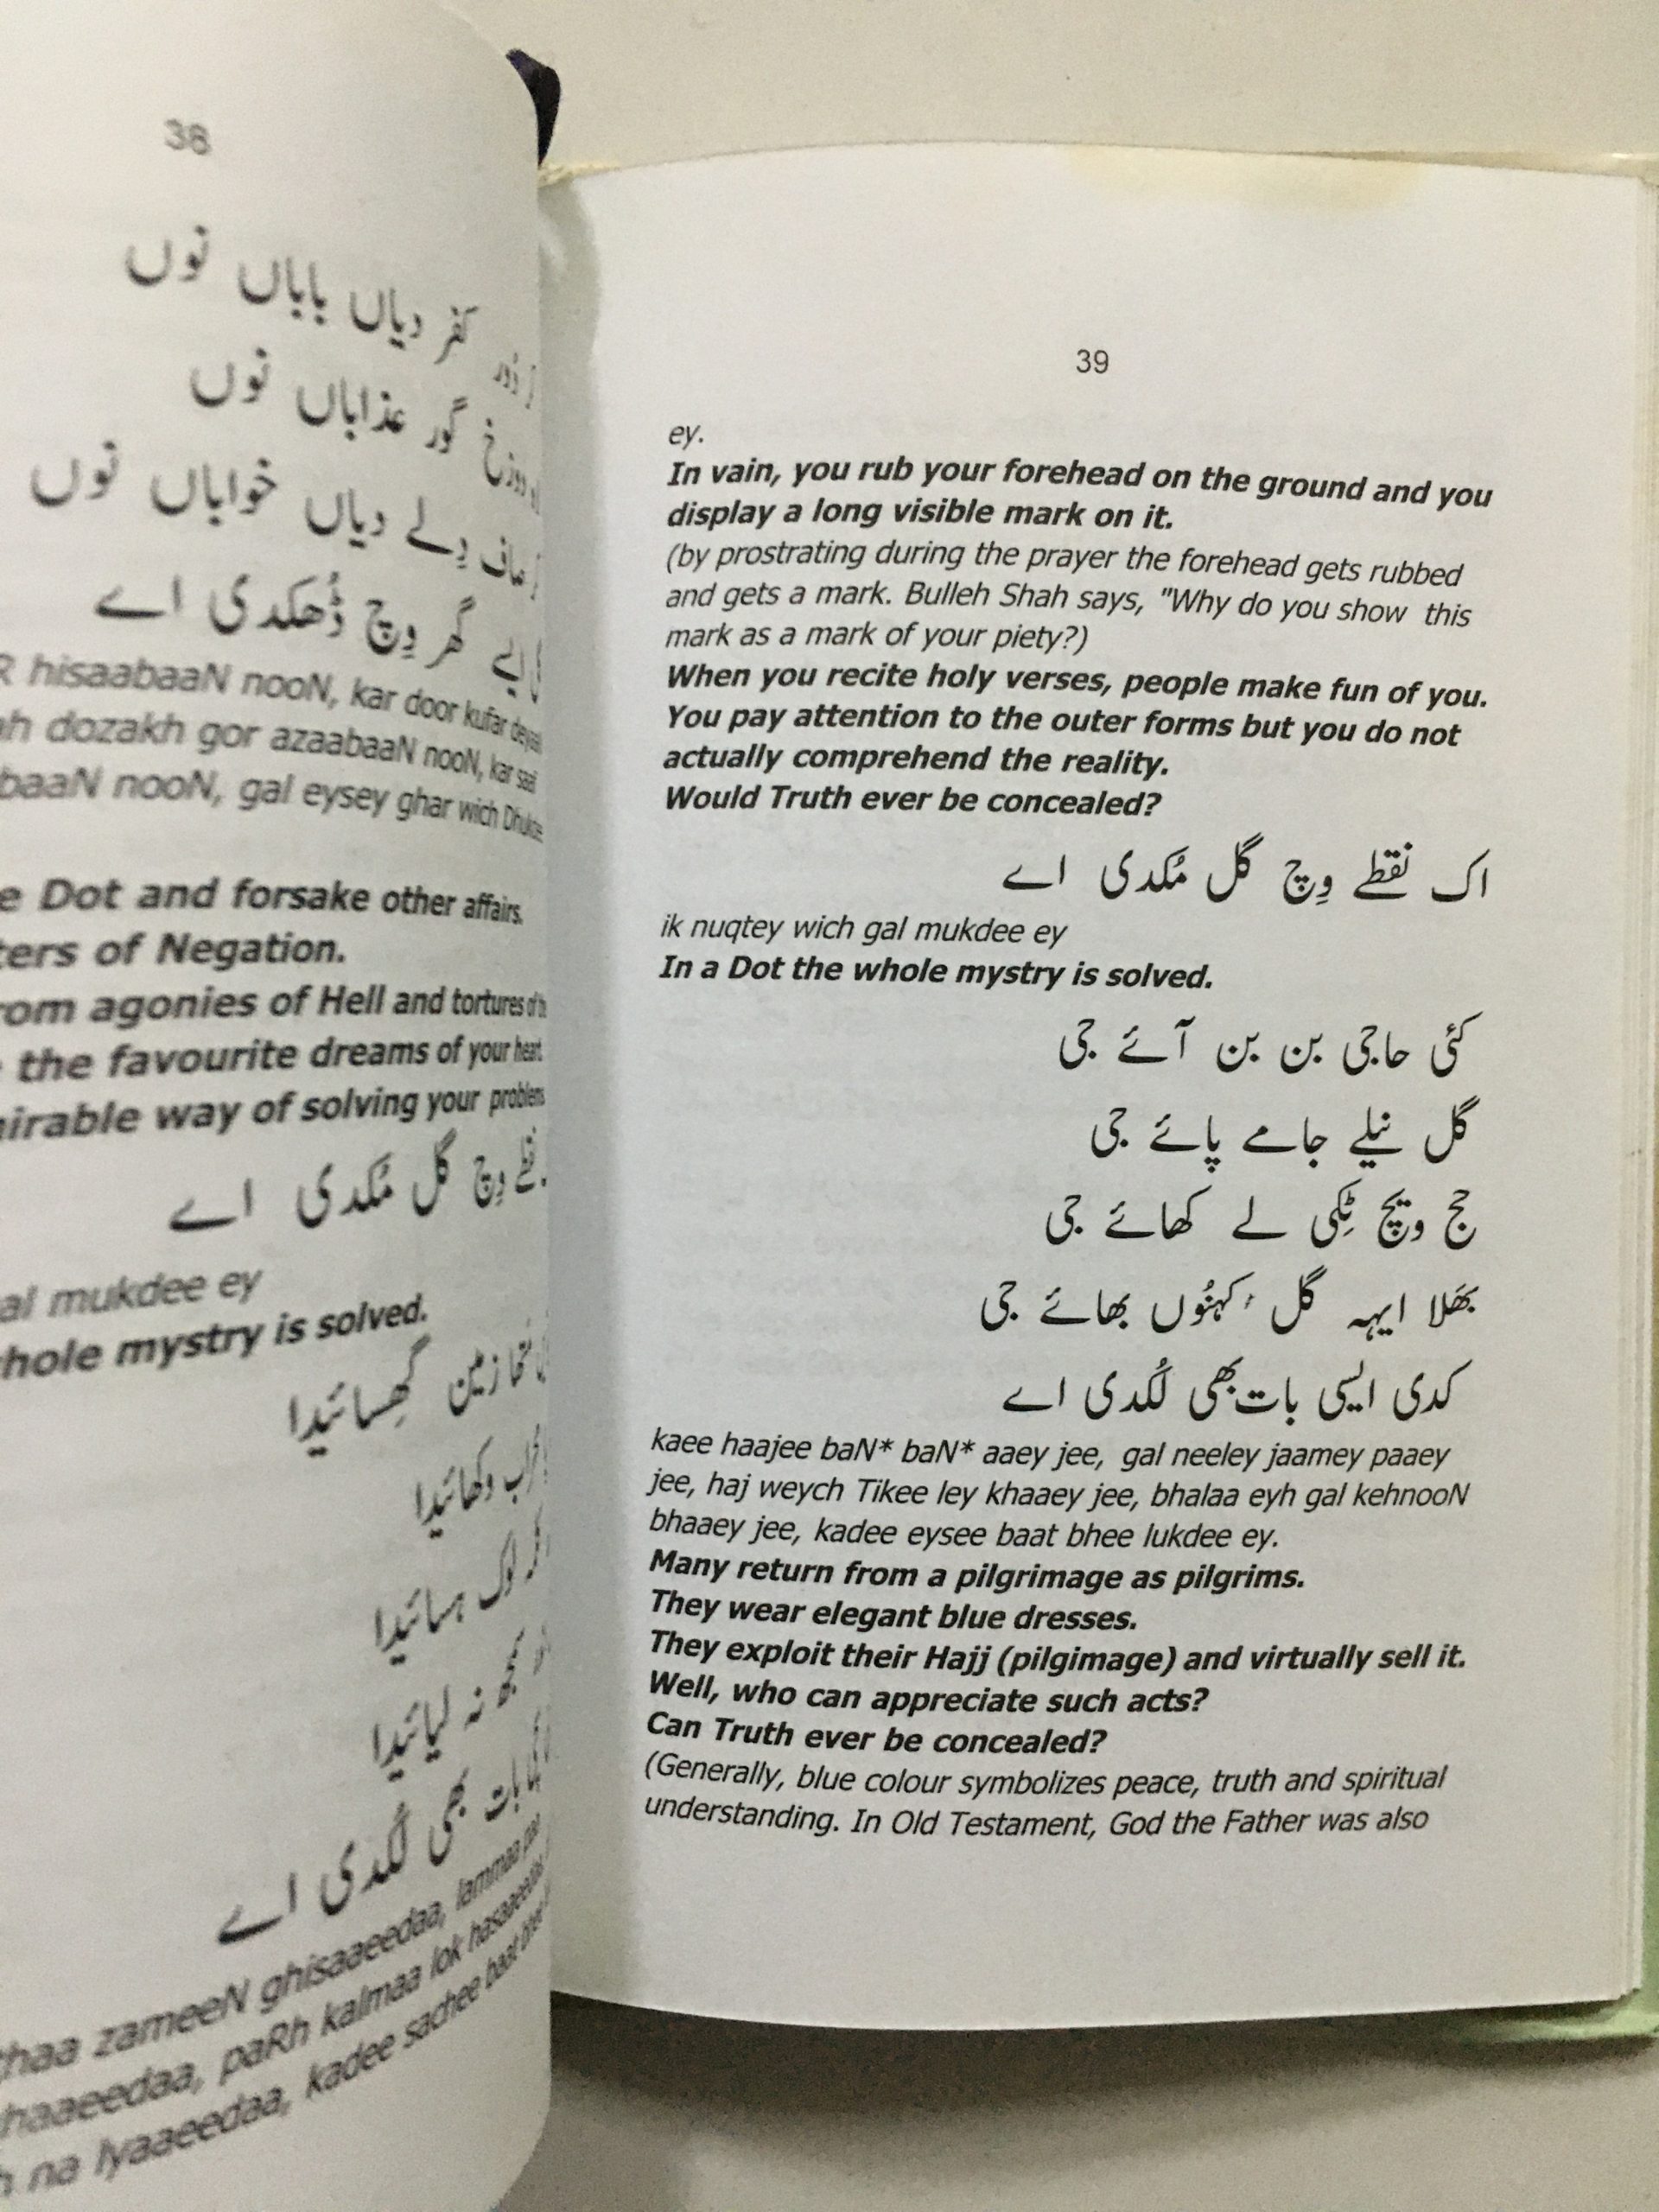 38
کفر دیاں باباں نوں
دوزخ گور عذاباں نوں
دِلے دیاں خواباں نوں
گھر وِچ ڈُھکدی اے
hisaabaaN nooN, kar door kufar
dozakh gor azaabaaN nooN, kar
nooN, gal eysey ghar wich
Dot and forsake other affairs.
of Negation.
agonies of Hell and tortures
the favourite dreams of your heart.
way of solving your problems
وِچ گل مُکدی اے
mukdee ey
mystry is solved.
زمین گھِسائیدا
وکھائیدا
لوک ہسائیدا
نہ لیائیدا
بات بھی لُکدی اے
zameeN ghisaaeedaa, lammaa
paRh kalmaa lok hasaaeedaa
na lyaaeedaa, kadee sachee baat
39
ey.
In vain, you rub your forehead on the ground and you
display a long visible mark on it.
(by prostrating during the prayer the forehead gets rubbed
and gets a mark. Bulleh Shah says, "Why do you show this
mark as a mark of your piety?)
When you recite holy verses, people make fun of you.
You pay attention to the outer forms but you do not
actually comprehend the reality.
Would Truth ever be concealed?
اک نقطے وِچ گل مُکدی اے
ik nuqtey wich gal mukdee ey
In a Dot the whole mystry is solved.
کئی حاجی بن بن آئے جی
گل نیلے جامے پائے جی
حج ویچ ٹِکی لے کھائے جی
بھَلا ایہہ گل کہنُوں بھائے جی
کدی ایسی بات بھی لُکدی اے
kaee haajee baN* baN* aaey jee, gal neeley jaamey paaey
jee, haj weych Tikee ley khaaey jee, bhalaa eyh gal kehnooN
bhaaey jee, kadee eysee baat bhee lukdee ey.
Many return from a pilgrimage as pilgrims.
They wear elegant blue dresses.
They exploit their Hajj (pilgimage) and virtually sell it.
Well, who can appreciate such acts?
Can Truth ever be concealed?
(Generally, blue colour symbolizes peace, truth and spiritual
understanding. In Old Testament, God the Father was also